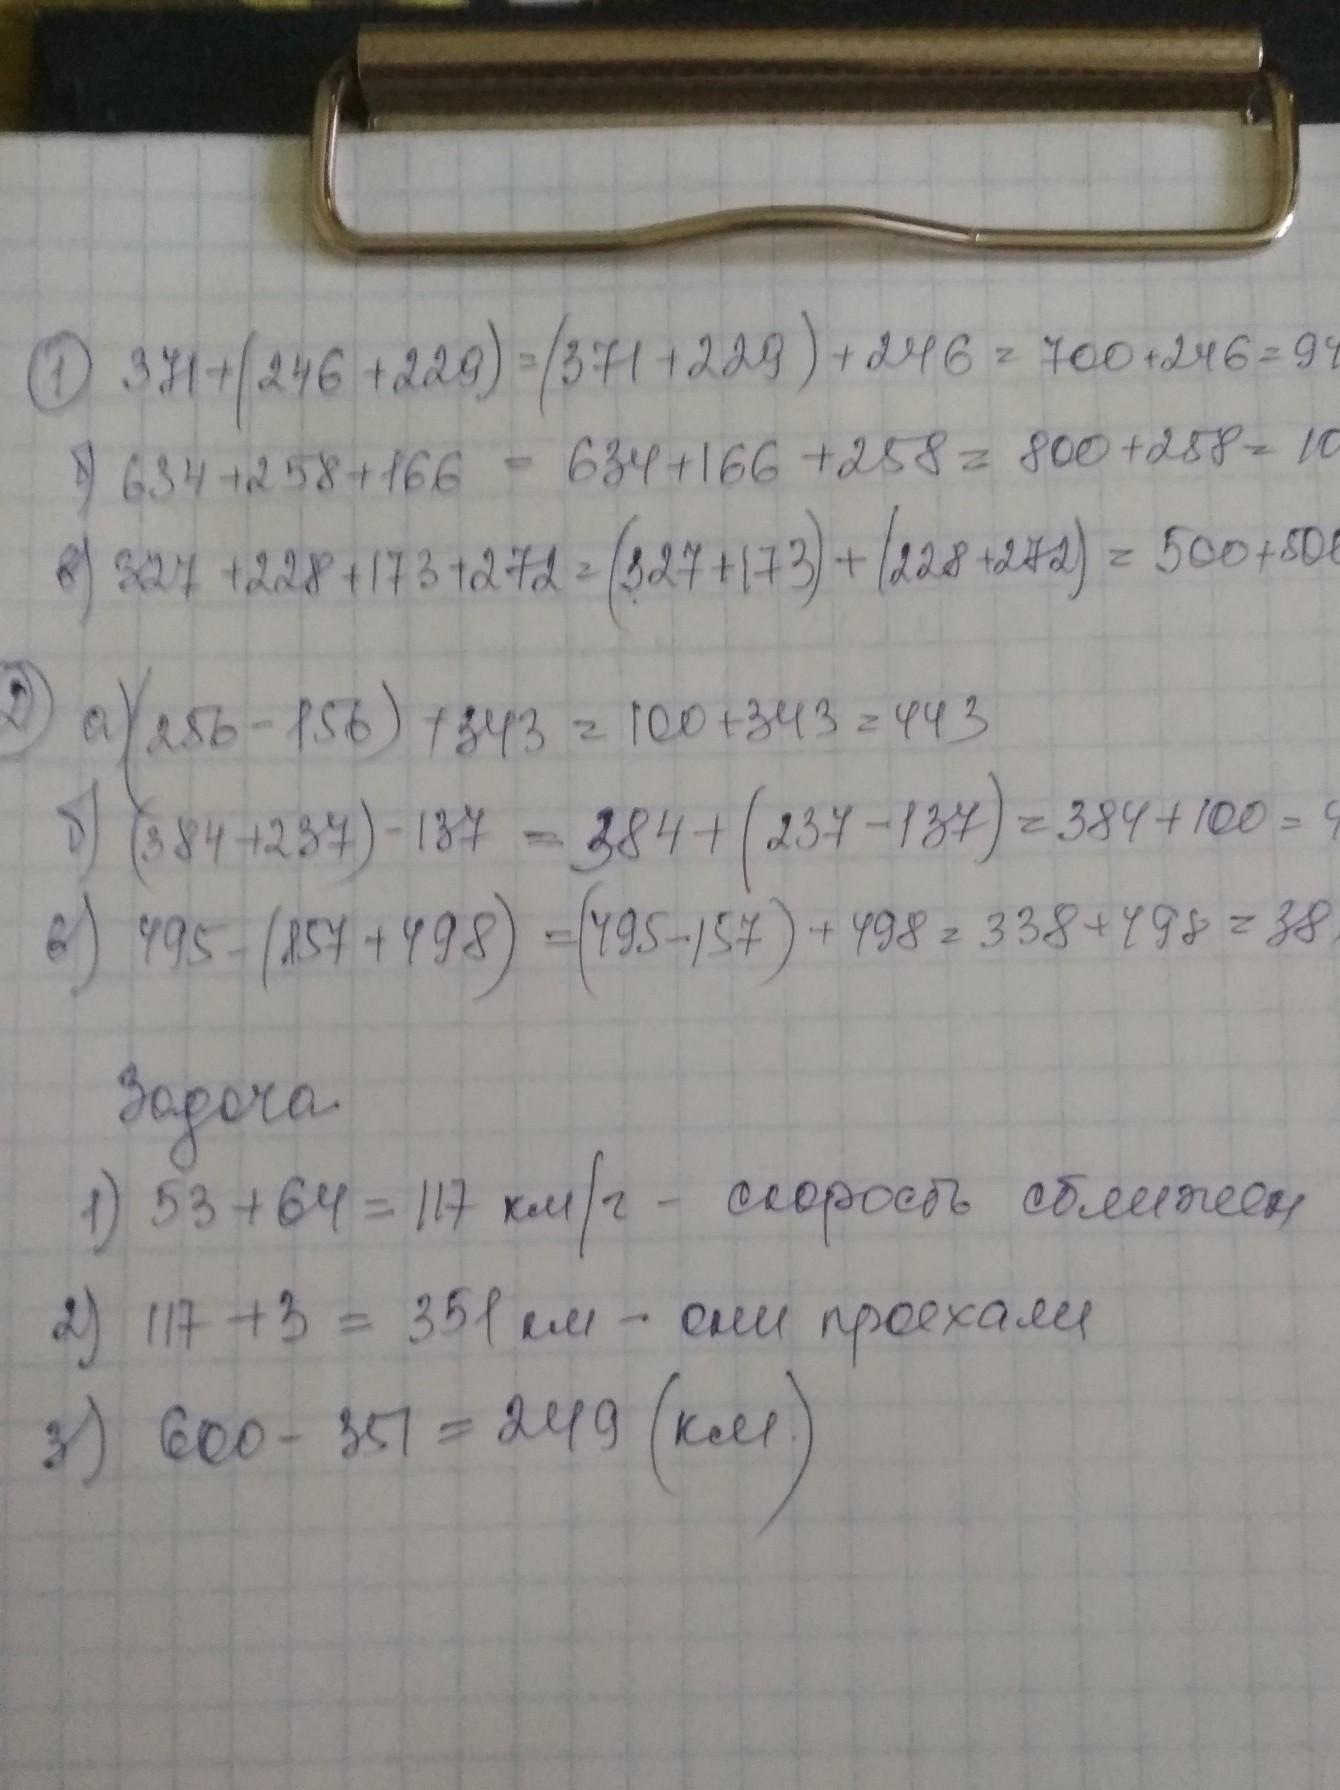 ① 371+(246+229)=(371+229)+246=700+246=94
б) 634+258+166 = 634+166+258=800+258=10
в) 327+228+173+272=(327+173)+(228+272)=500+500
② а)(256-156)+343=100+343=443
б) (384+237)-137 = 384+(237-137)=384+100=4
в) 495-(157+498)=(495-157)+498=338+498=38
Задача.
1) 53+64=117 км/г - скорость сближен
2) 117+3=351 км - они проехали
3) 600-351=249 (км.)